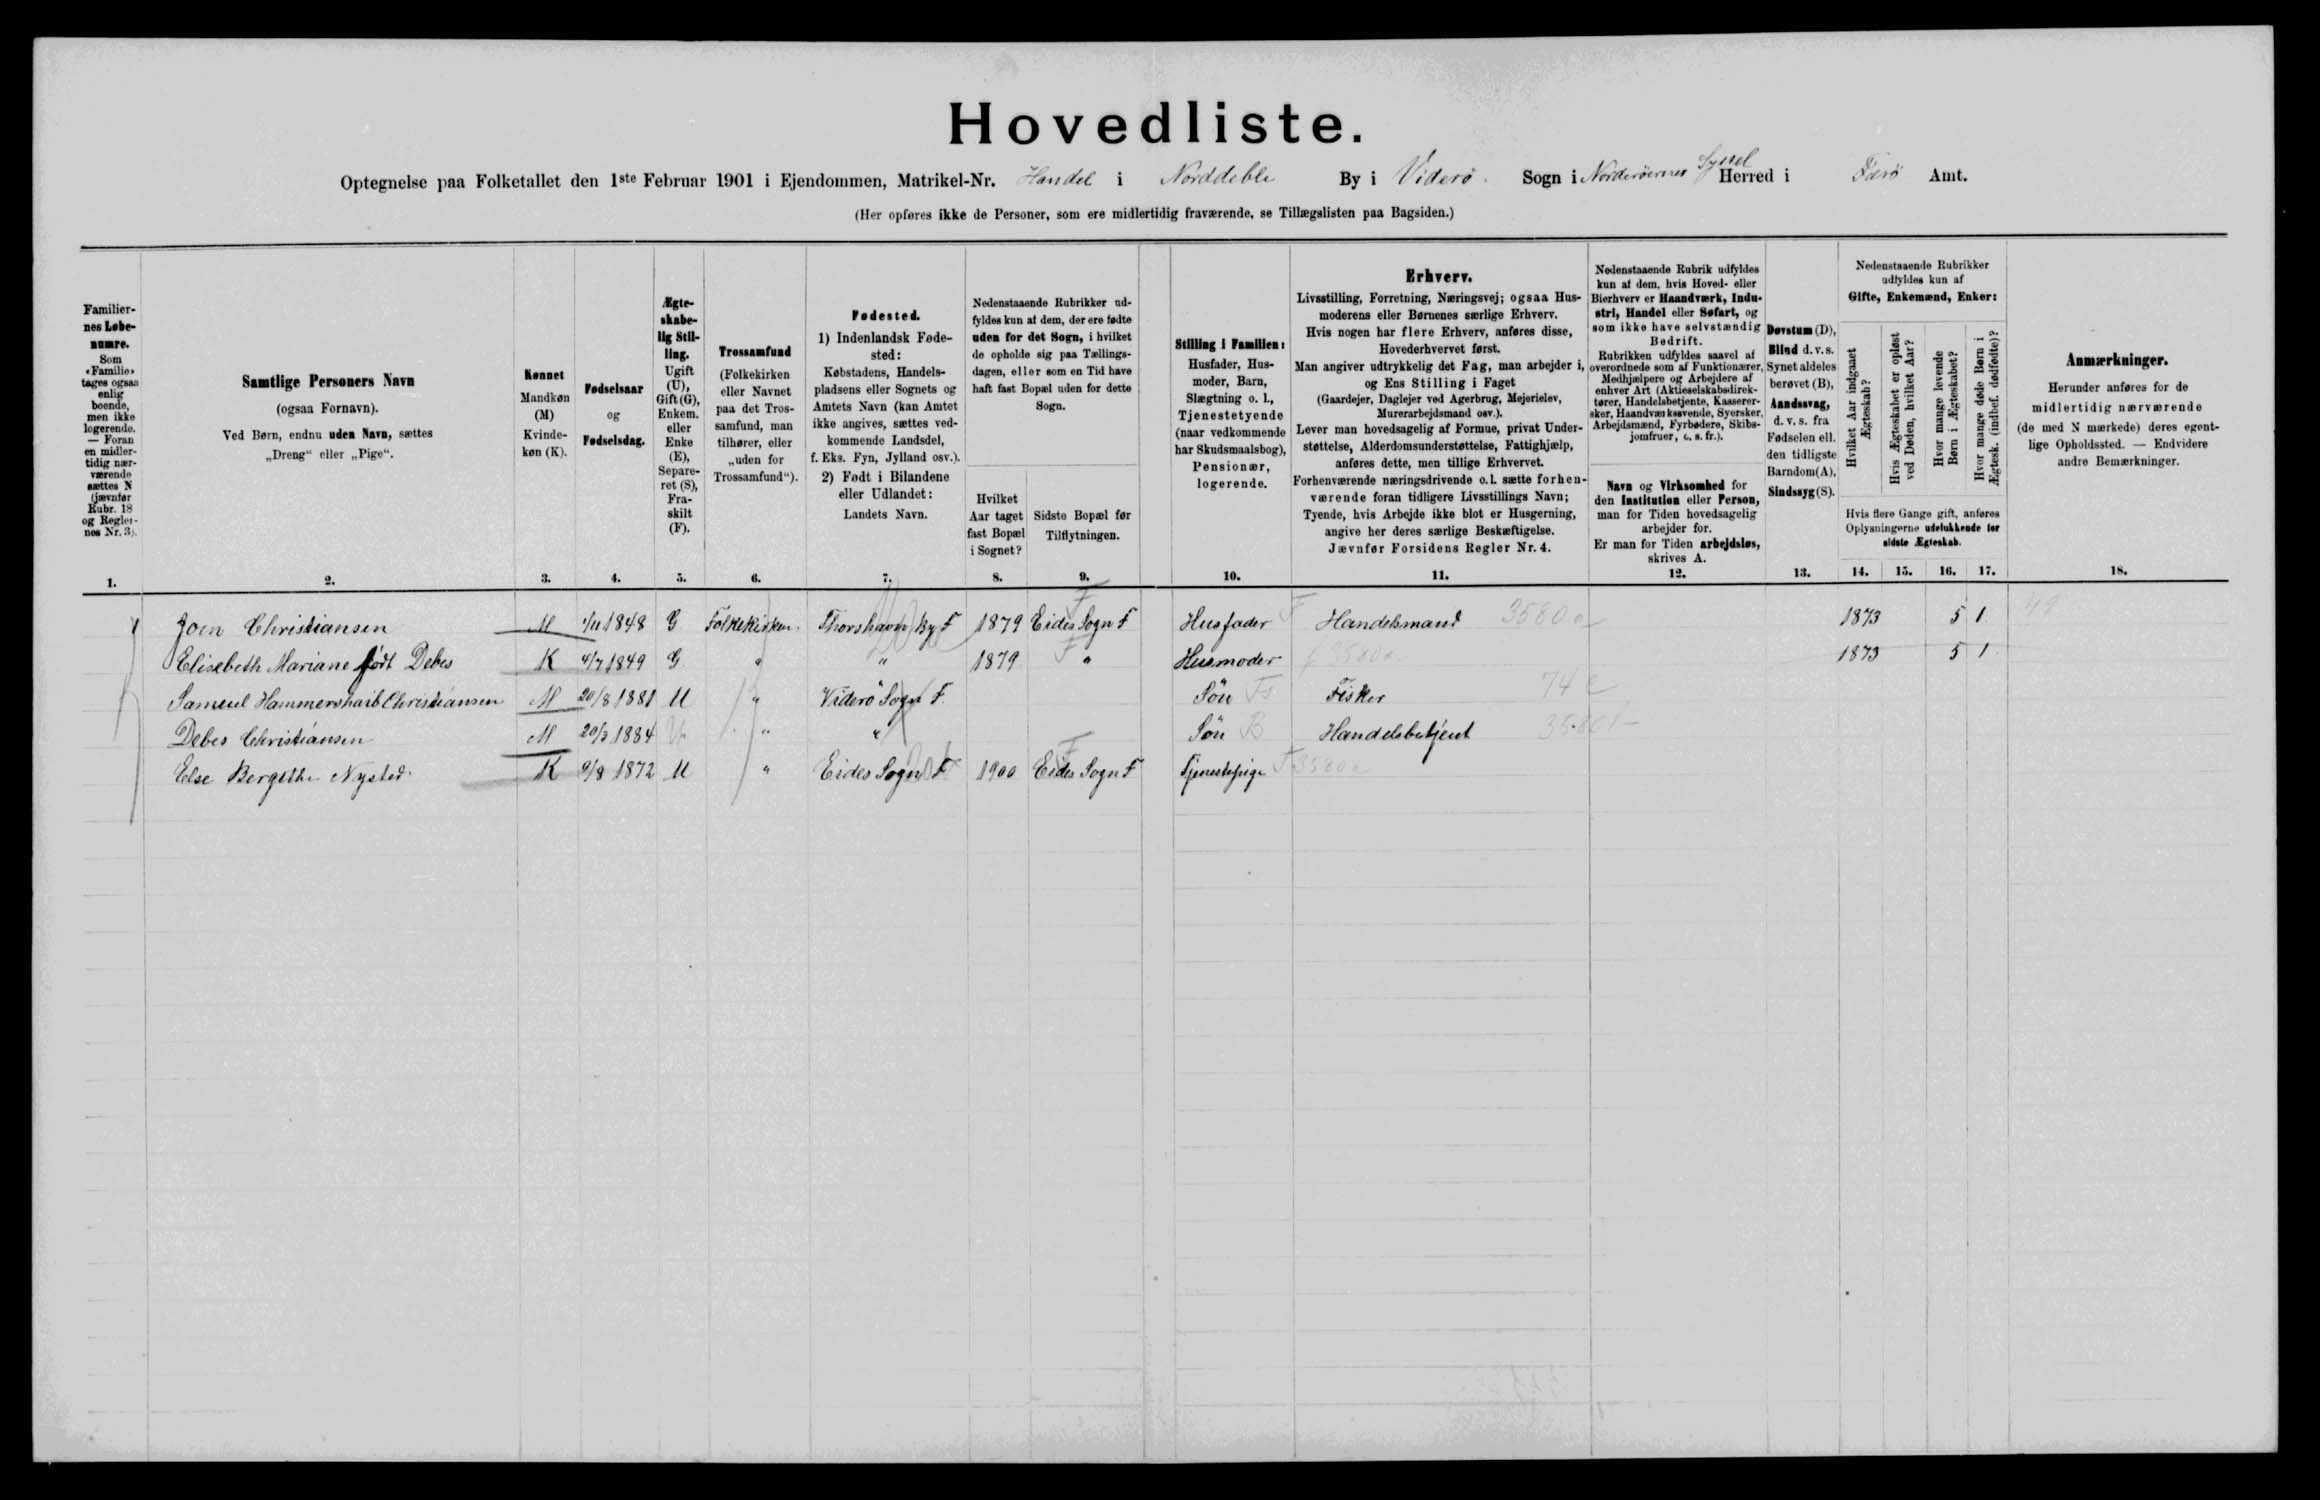 Hovedliste.
Optegnelse paa Folketallet den 1ste Februar 1901 i Ejendommen, Matrikel-Nr. Handel i Norddeble By i Viderö. Sogn i Norderöernes Syssel Herred i Färö Amt.
(Her opføres ikke de Personer, som ere midlertidig fraværende, se Tillægslisten paa Bagsiden.)
Familiernes Løbenumre.
Som «Familie» tages ogsaa enlig boende, men ikke logerende. — Foran en midlertidig nærværende sættes N (jævnfør Rubr. 18 og Reglernes Nr. 3).
1.
Samtlige Personers Navn
(ogsaa Fornavn).
Ved Børn, endnu uden Navn, sættes
„Dreng“ eller „Pige“.
2.
Kønnet
Mandkøn (M)
Kvindekøn (K).
3.
Fødselsaar
og
Fødselsdag.
4.
Ægteskabelig Stilling.
Ugift (U), Gift (G), Enkem. eller Enke (E), Separeret (S), Fraskilt (F).
5.
Trossamfund
(Folkekirken eller Navnet paa det Trossamfund, man tilhører, eller „uden for Trossamfund“).
6.
Fødested.
1) Indenlandsk Fødested:
Købstadens, Handelspladsens eller Sognets og Amtets Navn (kan Amtet ikke angives, sættes vedkommende Landsdel, f. Eks. Fyn, Jylland osv.).
2) Født i Bilandene eller Udlandet:
Landets Navn.
7.
Nedenstaaende Rubrikker udfyldes kun af dem, der ere fødte uden for det Sogn, i hvilket de opholde sig paa Tællingsdagen, eller som en Tid have haft fast Bopæl uden for dette Sogn.
Hvilket Aar taget fast Bopæl i Sognet?
8.
Sidste Bopæl før Tilflytningen.
9.
Stilling i Familien:
Husfader, Husmoder, Barn, Slægtning o. l., Tjenestetyende (naar vedkommende har Skudsmaalsbog), Pensionær, logerende.
10.
Erhverv.
Livsstilling, Forretning, Næringsvej; ogsaa Husmoderens eller Børnenes særlige Erhverv.
Hvis nogen har flere Erhverv, anføres disse, Hovederhvervet først.
Man angiver udtrykkelig det Fag, man arbejder i, og Ens Stilling i Faget
(Gaardejer, Daglejer ved Agerbrug, Mejerielev, Murerarbejdsmand osv.).
Lever man hovedsagelig af Formue, privat Understøttelse, Alderdomsunderstøttelse, Fattighjælp, anføres dette, men tillige Erhvervet.
Forhenværende næringsdrivende o. l. sætte forhenværende foran tidligere Livsstillings Navn;
Tyende, hvis Arbejde ikke blot er Husgerning, angive her deres særlige Beskæftigelse.
Jævnfør Forsidens Regler Nr. 4.
11.
Nedenstaaende Rubrik udfyldes kun af dem, hvis Hoved- eller Bierhverv er Haandværk, Industri, Handel eller Søfart, og som ikke have selvstændig Bedrift.
Rubrikken udfyldes saavel af overordnede som af Funktionærer, Medhjælpere og Arbejdere af enhver Art (Aktieselskabsdirektører, Handelsbetjente, Kasserersker, Haandværkssvende, Syersker, Arbejdsmænd, Fyrbødere, Skibsjomfruer, o. s. fr.).
Navn og Virksomhed for den Institution eller Person, man for Tiden hovedsagelig arbejder for.
Er man for Tiden arbejdsløs, skrives A.
12.
Døvstum (D),
Blind d. v. s. Synet aldeles berøvet (B),
Aandssvag, d. v. s. fra Fødselen ell. den tidligste Barndom (A),
Sindssyg (S).
13.
Nedenstaaende Rubrikker udfyldes kun af
Gifte, Enkemænd, Enker:
Hvilket Aar indgaaet Ægteskab?
Hvis Ægteskabet er opløst ved Døden, hvilket Aar?
Hvor mange levende Børn i Ægteskabet?
Hvor mange døde Børn i Ægtesk. (indbef. dødfødte)?
Hvis flere Gange gift, anføres Oplysningerne udelukkende for sidste Ægteskab.
14. 15. 16. 17.
Anmærkninger.
Herunder anføres for de midlertidig nærværende (de med N mærkede) deres egentlige Opholdssted. — Endvidere andre Bemærkninger.
18.
Joen Christiansen M 4/11 1848 G Folkekirken Thorshavn By F 1879 Eides Sogn F Husfader F Handelsmand 3580a 1873 5 1 49
Elisebeth Mariane født Debes K 4/7 1849 G " " 1879 " Husmoder f 3580a 1873 5 1
Samuel Hammershaib Christiansen M 20/8 1881 U " Viderö Sogn F. Sön Fs Fisker 74 c
Debes Christiansen M 20/3 1884 U " " Sön B Handelsbetjent 3580
Else Bergithe Nysted K 9/8 1872 U " Eides Sogn F 1900 Eides Sogn F Tjenestepige F 3580a